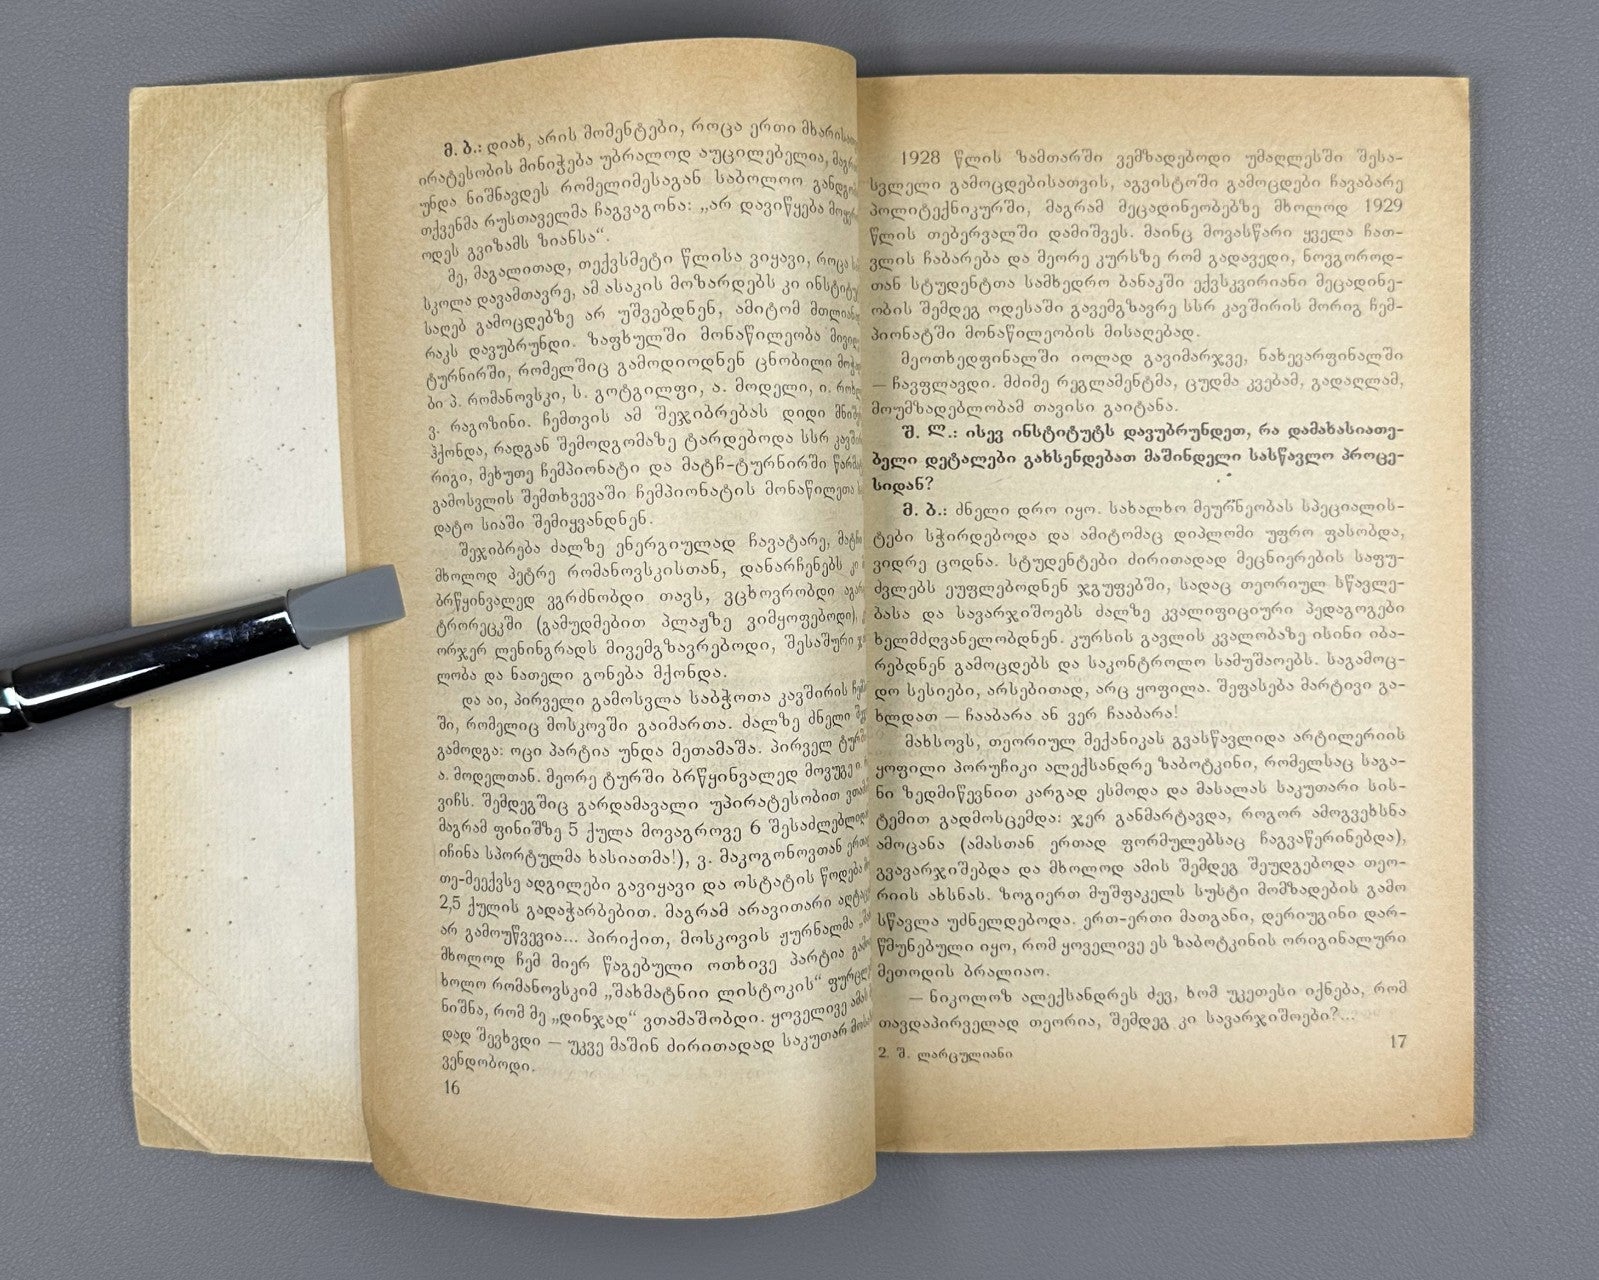 მ. ბ.: დიახ, არის მომენტები, როცა ერთი
ირატესობის მინიჭება უბრალოდ აუცილებელია,
უნდა ნიშნავდეს რომელიმესაგან საბოლოო
თქვენმა რუსთაველმა ჩაგვაგონა: „არ დავიწყება
ოდეს გვიზამს ზიანსა“.
მე, მაგალითად, თექვსმეტი წლისა ვიყავი, როცა
სკოლა დავამთავრე, ამ ასაკის მოზარდებს კი
საღებ გამოცდებზე არ უშვებდნენ, ამიტომ
რაკს დავუბრუნდი. ზაფხულში მონაწილეობა
ტურნირში, რომელშიც გამოდიოდნენ ცნობილი
ბი პ. რომანოვსკი, ს. გოტგილფი, ა. მოდელი, ი.
ვ. რაგოზინი. ჩემთვის ამ შეჯიბრებას დიდი
ჰქონდა, რადგან შემოდგომაზე ტარდებოდა სსრ
რიგი, მეხუთე ჩემპიონატი და მატჩ-ტურნირში
გამოსვლის შემთხვევაში ჩემპიონატის მონაწილეთა
დატო სიაში შემიყვანდნენ.
შეჯიბრება ძალზე ენერგიულად ჩავატარე,
მხოლოდ პეტრე რომანოვსკისთან, დანარჩენებს კი
ბრწყინვალედ ვგრძნობდი თავს, ვცხოვრობდი
ტრორეცკში (გამუდმებით პლაჟზე ვიმყოფებოდი),
ორჯერ ლენინგრადს მივემგზავრებოდი, შესაშური
ლობა და ნათელი გონება მქონდა.
და აი, პირველი გამოსვლა საბჭოთა კავშირის
ში, რომელიც მოსკოვში გაიმართა. ძალზე ძნელი
გამოდგა: ოცი პარტია უნდა მეთამაშა. პირველ
ა. მოდელთან. მეორე ტურში ბრწყინვალედ მოვუგე
ვიჩს. შემდეგშიც გარდამავალი უპირატესობით
მაგრამ ფინიშზე 5 ქულა მოვაგროვე 6
იჩინა სპორტულმა ხასიათმა!), ვ. მაკოგონოვთან
თე-მეექვსე ადგილები გავიყავი და ოსტატის წოდება
2,5 ქულის გადაჭარბებით. მაგრამ არავითარი
არ გამოუწვევია... პირიქით, მოსკოვის ჟურნალმა
მხოლოდ ჩემ მიერ წაგებული ოთხივე პარტია
ხოლო რომანოვსკიმ „შახმატნიი ლისტოკის“
ნიშნა, რომ მე „დინჯად“ ვთამაშობდი. ყოველივე
დად შევხვდი — უკვე მაშინ ძირითადად საკუთარ
ვენდობოდი.
16
1928 წლის ზამთარში ვემზადებოდი უმაღლესში შესა-
სვლელი გამოცდებისათვის, აგვისტოში გამოცდები ჩავაბარე
პოლიტექნიკურში, მაგრამ მეცადინეობებზე მხოლოდ 1929
წლის თებერვალში დამიშვეს. მაინც მოვასწარი ყველა ჩათ-
ვლის ჩაბარება და მეორე კურსზე რომ გადავედი, ნოვგოროდ-
თან სტუდენტთა სამხედრო ბანაკში ექვსკვირიანი მეცადინე-
ობის შემდეგ ოდესაში გავემგზავრე სსრ კავშირის მორიგ ჩემ-
პიონატში მონაწილეობის მისაღებად.
მეოთხედფინალში იოლად გავიმარჯვე, ნახევარფინალში
— ჩავფლავდი. მძიმე რეგლამენტმა, ცუდმა კვებამ, გადაღლამ,
მოუმზადებლობამ თავისი გაიტანა.
შ. ლ.: ისევ ინსტიტუტს დავუბრუნდეთ, რა დამახასიათე-
ბელი დეტალები გახსენდებათ მაშინდელი სასწავლო პროცე-
სიდან?
მ. ბ.: ძნელი დრო იყო. სახალხო მეურნეობას სპეციალის-
ტები სჭირდებოდა და ამიტომაც დიპლომი უფრო ფასობდა,
ვიდრე ცოდნა. სტუდენტები ძირითადად მეცნიერების საფუ-
ძვლებს ეუფლებოდნენ ჯგუფებში, სადაც თეორიულ სწავლე-
ბასა და სავარჯიშოებს ძალზე კვალიფიციური პედაგოგები
ხელმძღვანელობდნენ. კურსის გავლის კვალობაზე ისინი იბა-
რებდნენ გამოცდებს და საკონტროლო სამუშაოებს. საგამოც-
დო სესიები, არსებითად, არც ყოფილა. შეფასება მარტივი გა-
ხლდათ — ჩააბარა ან ვერ ჩააბარა!
მახსოვს, თეორიულ მექანიკას გვასწავლიდა არტილერიის
ყოფილი პორუჩიკი ალექსანდრე ზაბოტკინი, რომელსაც საგა-
ნი ზედმიწევნით კარგად ესმოდა და მასალას საკუთარი სის-
ტემით გადმოსცემდა: ჯერ განმარტავდა, როგორ ამოგვეხსნა
ამოცანა (ამასთან ერთად ფორმულებსაც ჩაგვაწერინებდა),
გვავარჯიშებდა და მხოლოდ ამის შემდეგ შეუდგებოდა თეო-
რიის ახსნას. ზოგიერთ მუშფაკელს სუსტი მომზადების გამო
სწავლა უძნელდებოდა. ერთ-ერთი მათგანი, დერიუგინი დარ-
წმუნებული იყო, რომ ყოველივე ეს ზაბოტკინის ორიგინალური
მეთოდის ბრალიაო.
— ნიკოლოზ ალექსანდრეს ძევ, ხომ უკეთესი იქნება, რომ
თავდაპირველად თეორია, შემდეგ კი სავარჯიშოები?...
2. შ. ლარცულიანი
17